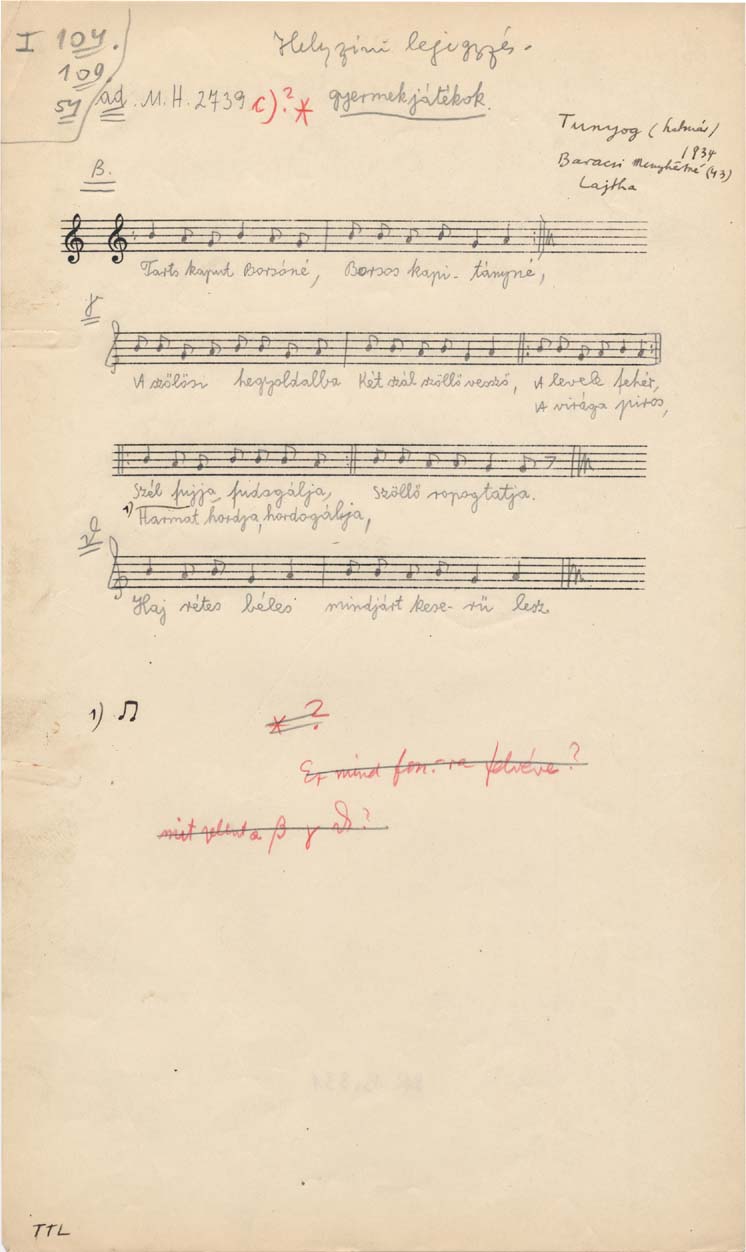 I 104.
109
57
Helyszíni lejegyzés.
ad. M.H. 2739 c).? * gyermekjátékok.
Tunyog (Szatmár)
1934
Baracsi Menyhértné (43)
Lajtha
β.
Tarts kaput Borsóné, Borsos kapi-tányné,
γ
A szőlősi hegyoldalba Két szál szöllővessző, A levele fehér,
A virága piros,
Szél fujja, fudogálja, Szöllő ropogtatja.
1) Harmat hordja, hordogálja,
Haj rétes béles mindjárt kese-rű lesz
1)
* ?
Ez mind fon.-ra felvéve?
mit jelent a β γ δ?
TTL